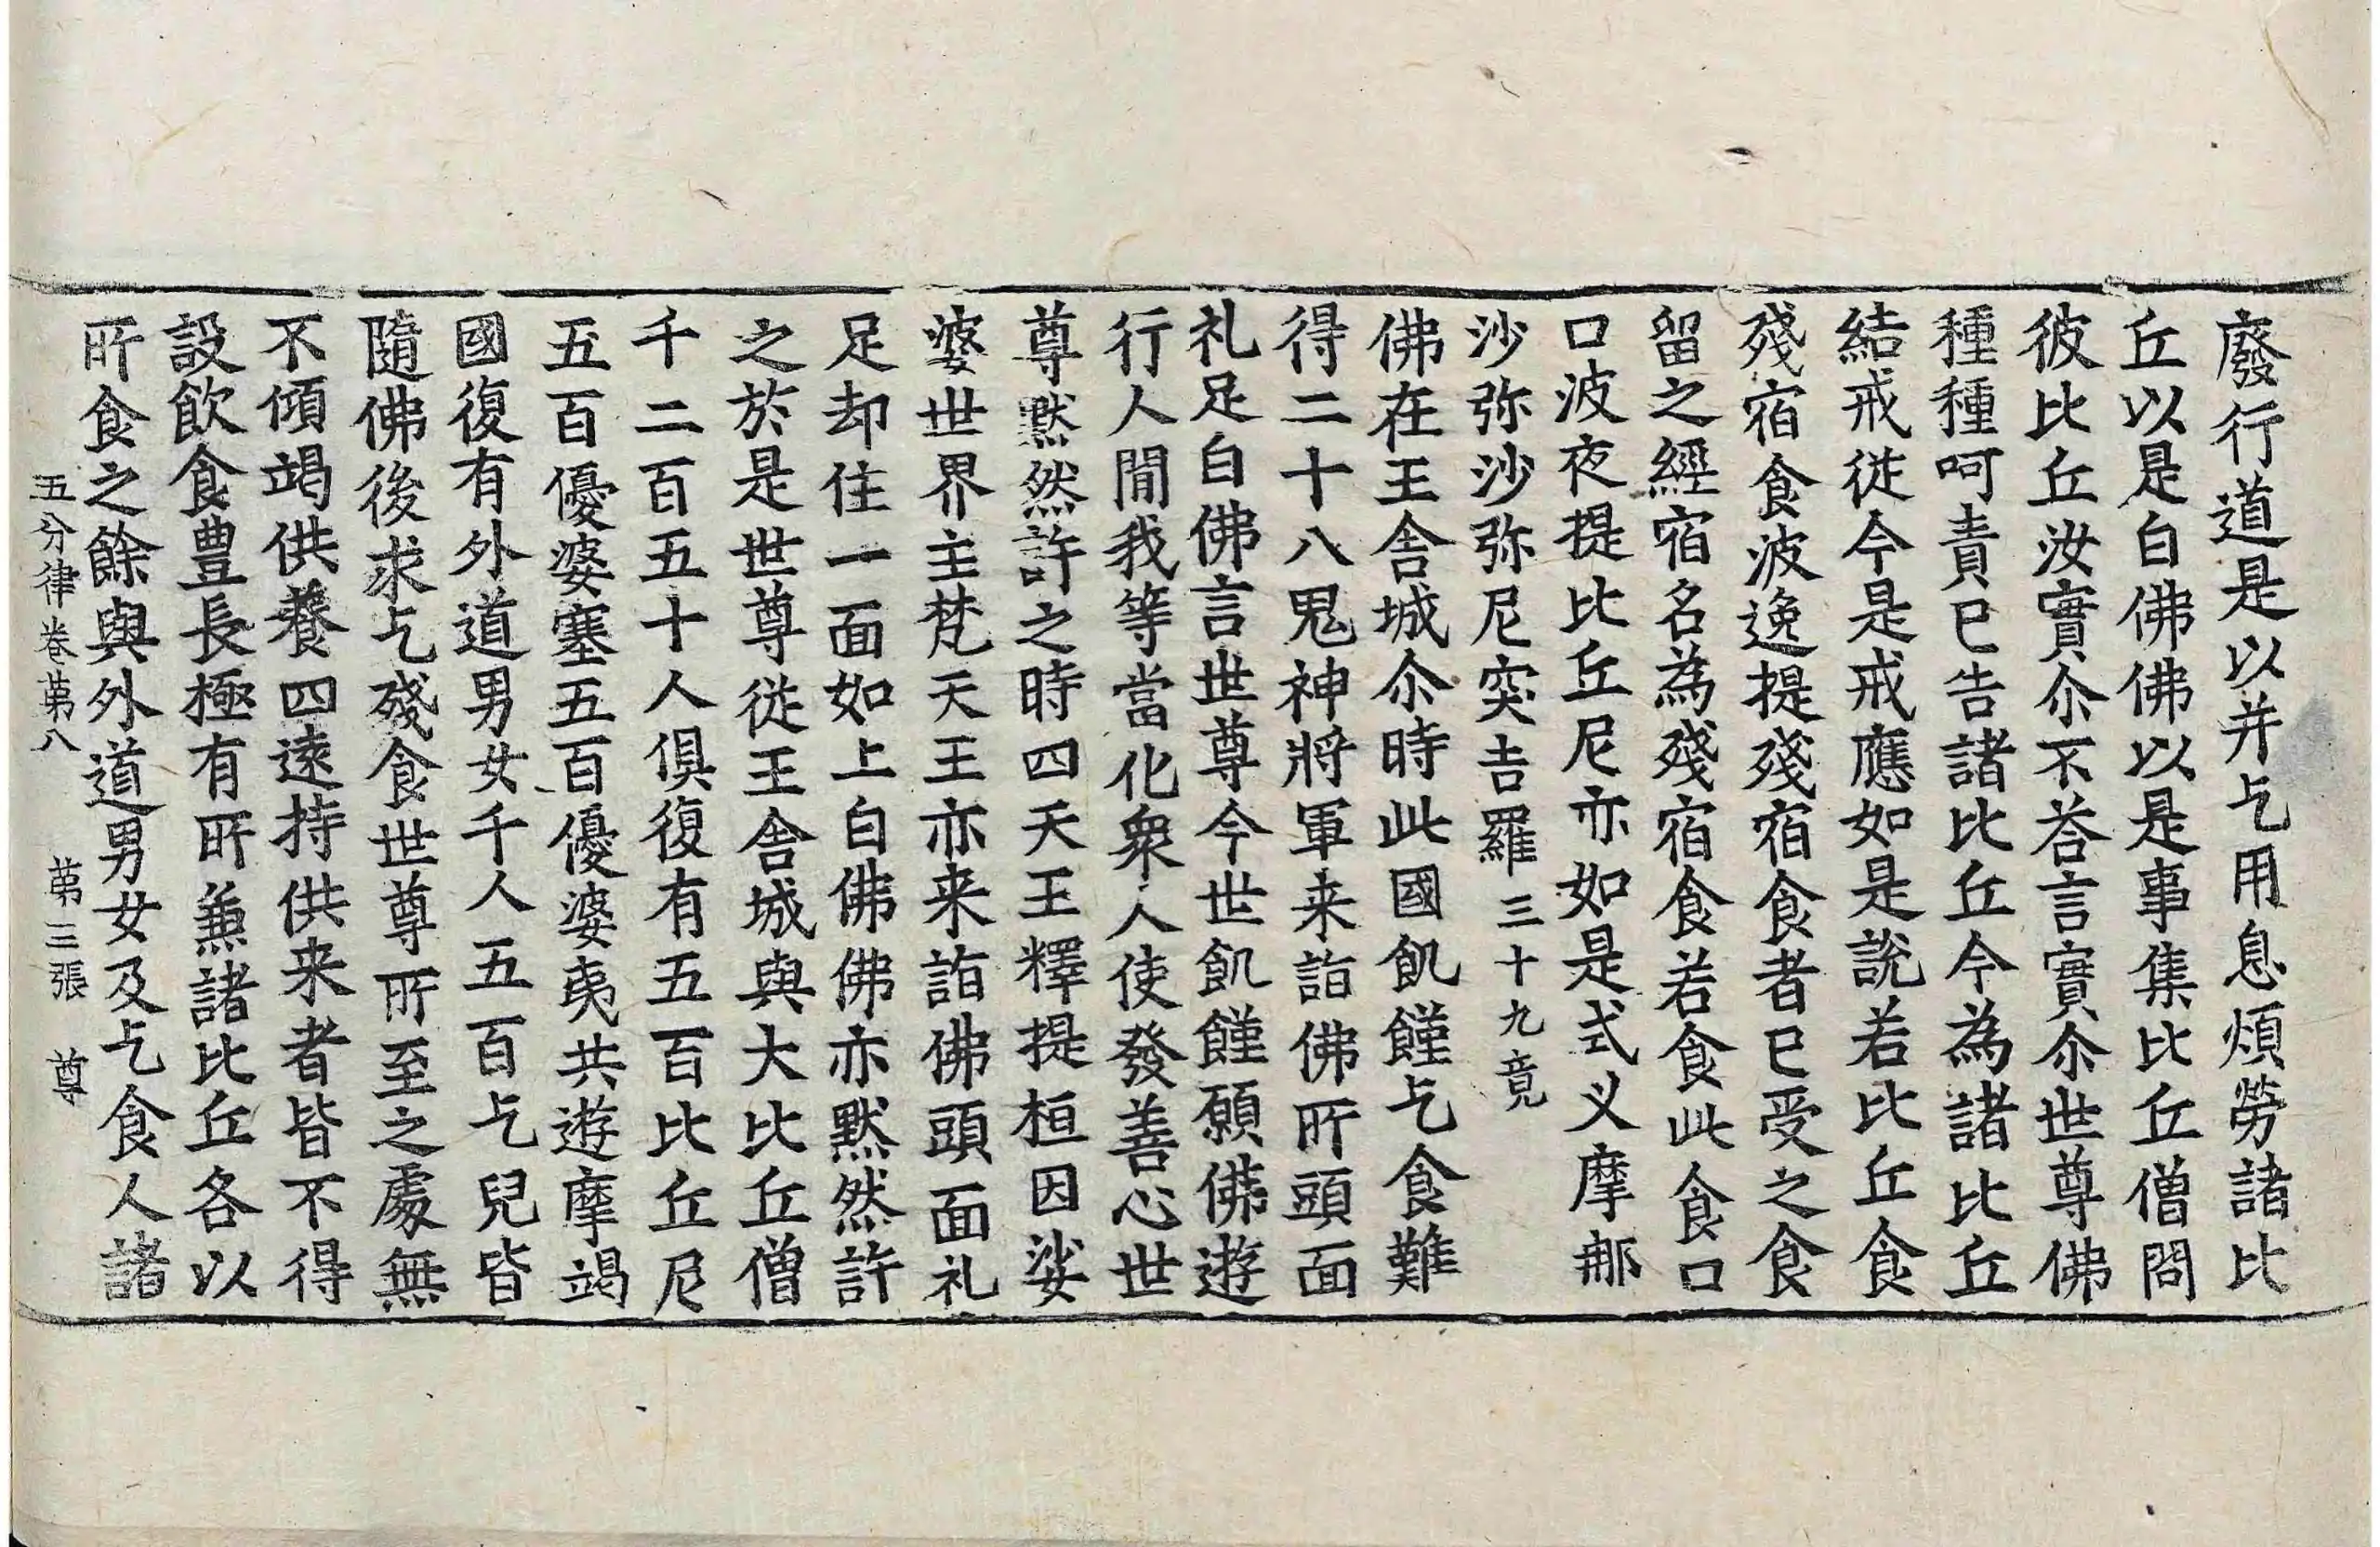 廢行道是以并乞用息煩勞諸比
丘以是白佛佛以是事集比丘僧問
彼比丘汝實尒不荅言實尒世尊佛
種種呵責已告諸比丘今為諸比丘
結戒從今是戒應如是說若比丘食
殘宿食波逸提殘宿食者已受之食
留之經宿名為殘宿食若食此食口
口波夜提比丘尼亦如是式义摩那
沙弥沙弥尼突吉羅三十九竟
佛在王舍城尒時此國飢饉乞食難
得二十八鬼神將軍来詣佛所頭面
礼足白佛言世尊今世飢饉願佛遊
行人閒我等當化衆人使發善心世
尊默然許之時四天王釋提桓因娑
婆世界主梵天王亦来詣佛頭面礼
足却住一面如上白佛佛亦默然許
之於是世尊從王舍城與大比丘僧
千二百五十人俱復有五百比丘尼
五百優婆塞五百優婆夷共遊摩竭
國復有外道男女千人五百乞兒皆
隨佛後求乞殘食世尊所至之處無
不傾竭供養四遠持供来者皆不得
設飲食豊長極有所兼諸比丘各以
所食之餘與外道男女及乞食人諸
五分律卷第八 第三張 尊